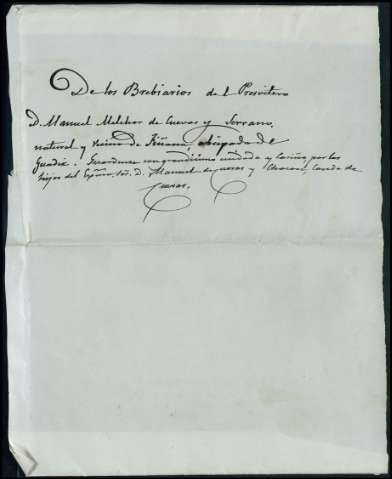 De los Brebiarios del Presvitero
D. Manuel Melchor de Cuevas y Serrano,
natural y vecino de Fiñana, obispado de
Guadix. Guardense con grandisimo cuidado y cariño por los
hijos del Exmo. Sor. D. Manuel de Cuevas y Chacon, Conde de
Cuevas.